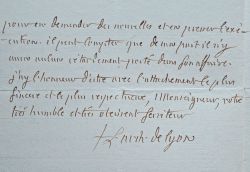 pour en demander des nouvelles et en presser l'exe-
cution. il peut compter que de ma part il n'y
aura aucun retardement porté dans son affaire.
j'ay l'honneur d'être avec l'attachement le plus
sincere et le plus respectueux, Monseigneur, votre
très humble et très obeissant serviteur
de Lyon